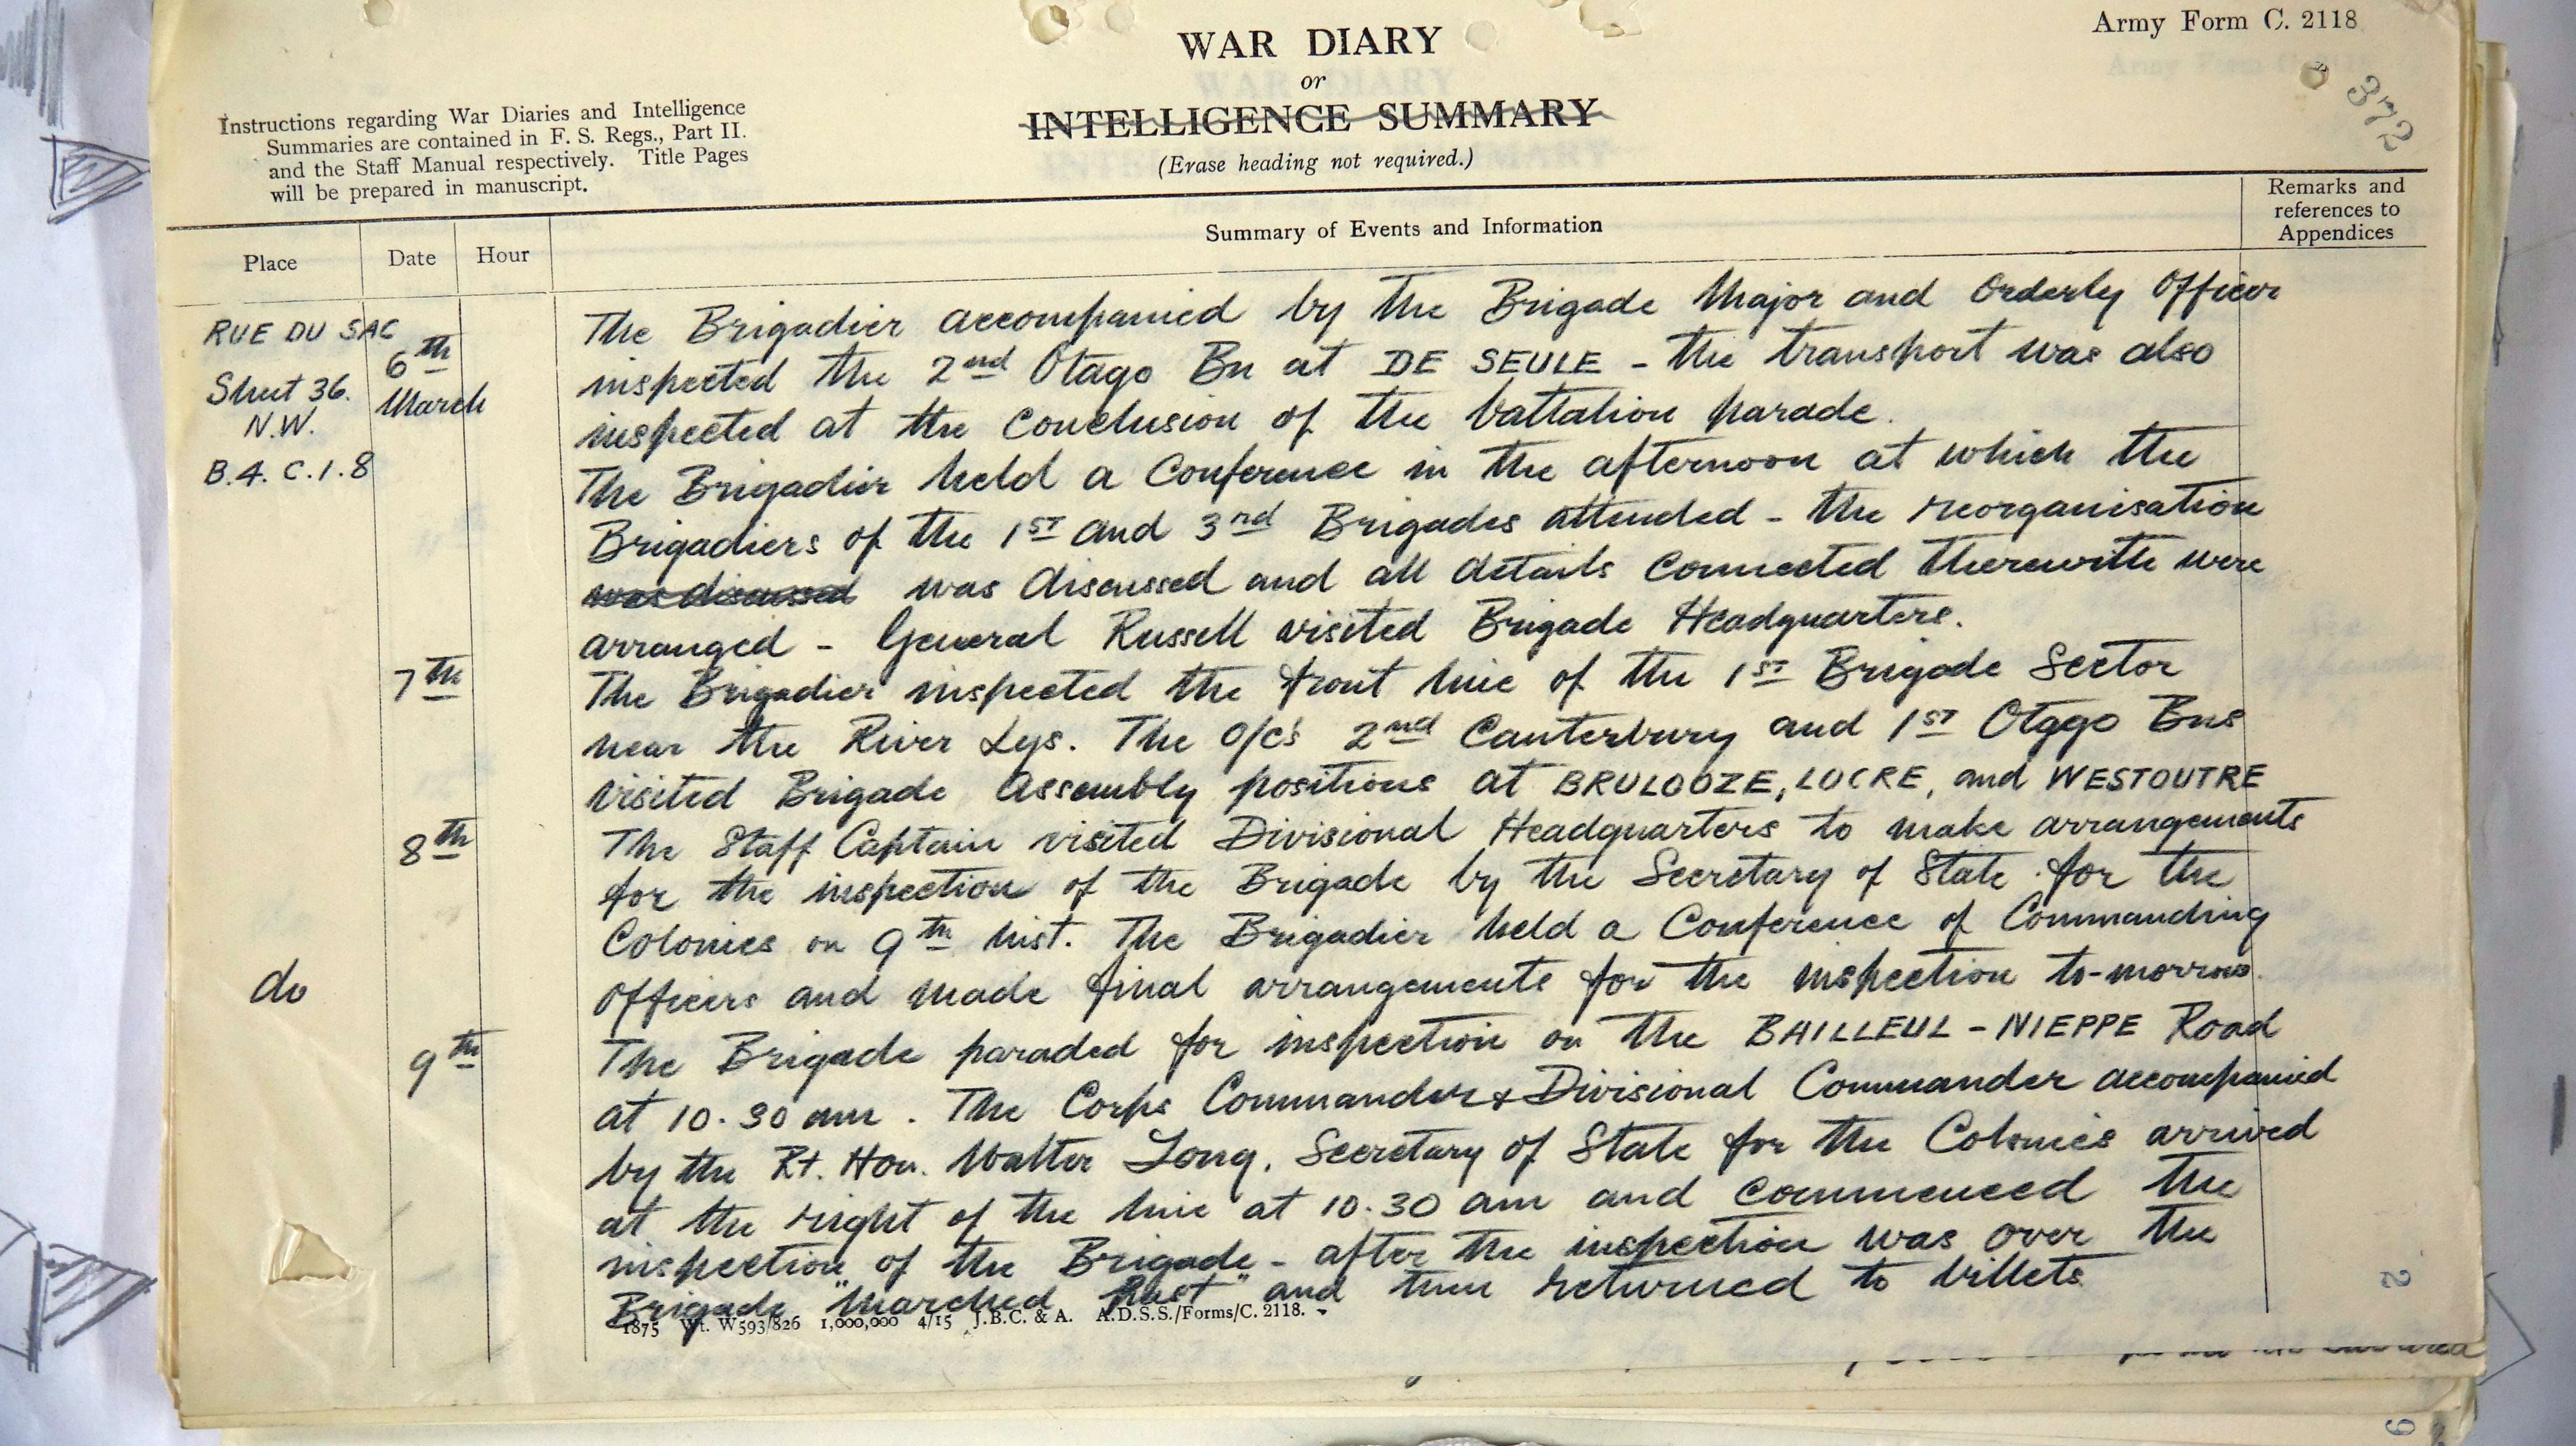 Army Form C. 2118
372
WAR DIARY
or
INTELLIGENCE SUMMARY
(Erase heading not required.)
Instructions regarding War Diaries and Intelligence
Summaries are contained in F. S. Regs., Part II.
and the Staff Manual respectively. Title Pages
will be prepared in manuscript.
Place
Date
Hour
Summary of Events and Information
Remarks and
references to
Appendices
RUE DU SAC
Sheet 36.
N.W.
B.4. C.1.8
6th
March
The Brigadier accompanied by the Brigade Major and Orderly Officer
inspected the 2nd Otago Bn at DE SEULE - the transport was also
inspected at the conclusion of the battalion parade.
The Brigadier held a Conference in the afternoon at which the
Brigadiers of the 1ST and 3rd Brigades attended - the reorganisation
was discussed was discussed and all details connected therewith were
arranged - General Russell visited Brigade Headquarters.
7th
The Brigadier inspected the front line of the 1ST Brigade Sector
near the River Lys. The O/c's 2nd Canterbury and 1ST Otago Bns
visited Brigade Assembly positions at BRULOOZE, LOCRE, and WESTOUTRE
8th
The Staff Captain visited Divisional Headquarters to make arrangements
for the inspection of the Brigade by the Secretary of State for the
Colonies on 9th inst. The Brigadier held a Conference of Commanding
Officers and made final arrangements for the inspection to-morrow.
do
9th
The Brigade paraded for inspection on the BAILLEUL - NIEPPE Road
at 10.30 am. The Corps Commander & Divisional Commander accompanied
by the Rt. Hon. Walter Long, Secretary of State for the Colonies arrived
at the right of the line at 10.30 am and commenced the
inspection of the Brigade - after the inspection was over the
Brigade "Marched Past" and then returned to billets
1875 Wt. W593/826 1,000,000 4/15 J.B.C. & A. A.D.S.S./Forms/C. 2118.
2